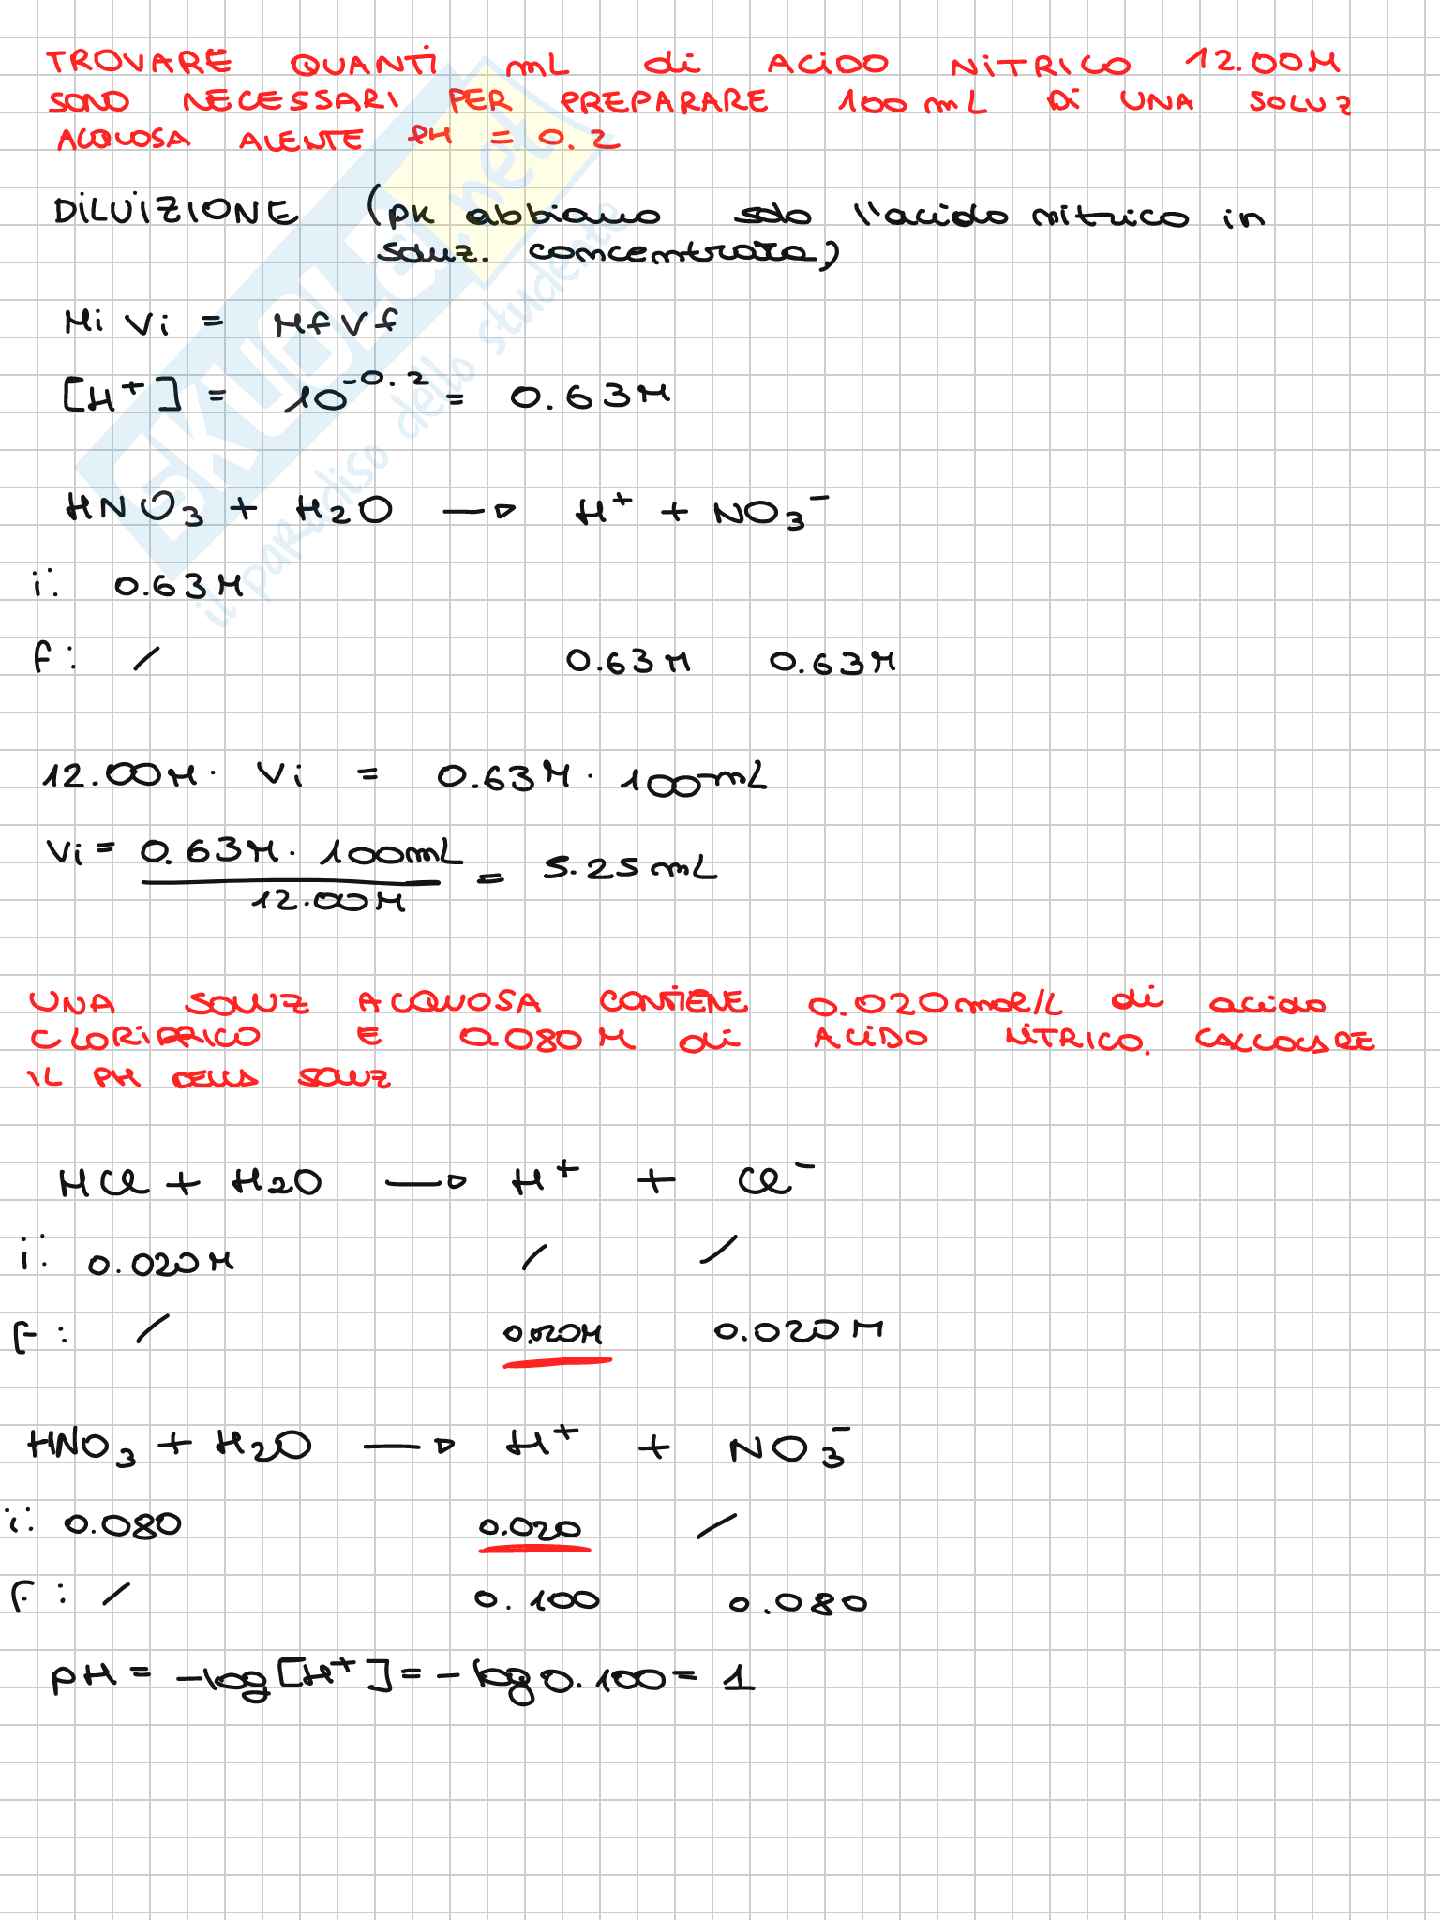 TROVARE QUANTI mL di ACIDO NITRICO 12.00M
SONO NECESSARI PER PREPARARE 100mL DI UNA SOLUZ
ACQUOSA AVENTE PH = 0.2
DILUIZIONE (pk abbiamo solo l'acido nitrico in
soluz. concentrata)
Mi Vi = Mf Vf
[H⁺] = 10⁻⁰·² = 0.63M
HNO₃ + H₂O → H⁺ + NO₃⁻
i: 0.63M
f: / 0.63M 0.63M
12.00M · Vi = 0.63M · 100mL
Vi = 0.63M · 100mL / 12.00M = 5.25mL
UNA SOLUZ ACQUOSA CONTIENE 0.020mol/L di acido
CLORIDRICO E 0.080M di ACIDO NITRICO. CALCOLARE
IL PH DELLA SOLUZ
HCl + H₂O → H⁺ + Cl⁻
i: 0.020M / /
F: / 0.020M 0.020M
HNO₃ + H₂O → H⁺ + NO₃⁻
i: 0.080 0.020 /
F: / 0.100 0.080
pH = -log[H⁺] = -log 0.100 = 1
SKUOLA.net
il paradiso dello studente